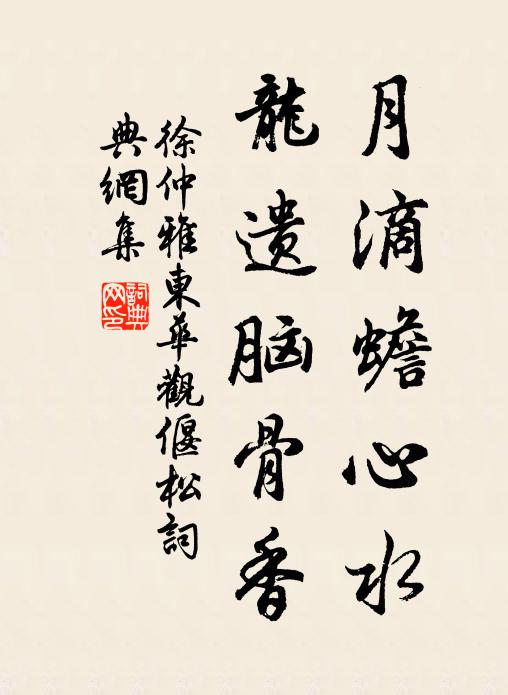 月滴蟾心水
龍遺脑骨香
徐仲雅東華觀偃松詞
典網集
詞典網印